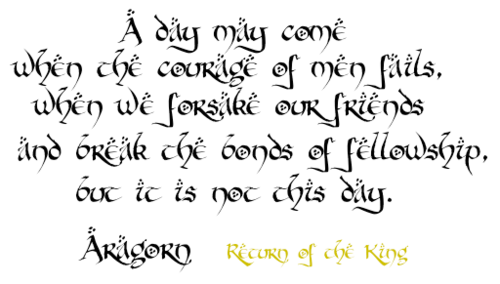 A day may come
when the courage of men fails,
when we forsake our friends
and break the bonds of fellowship,
but it is not this day.
Aragorn Return of the King